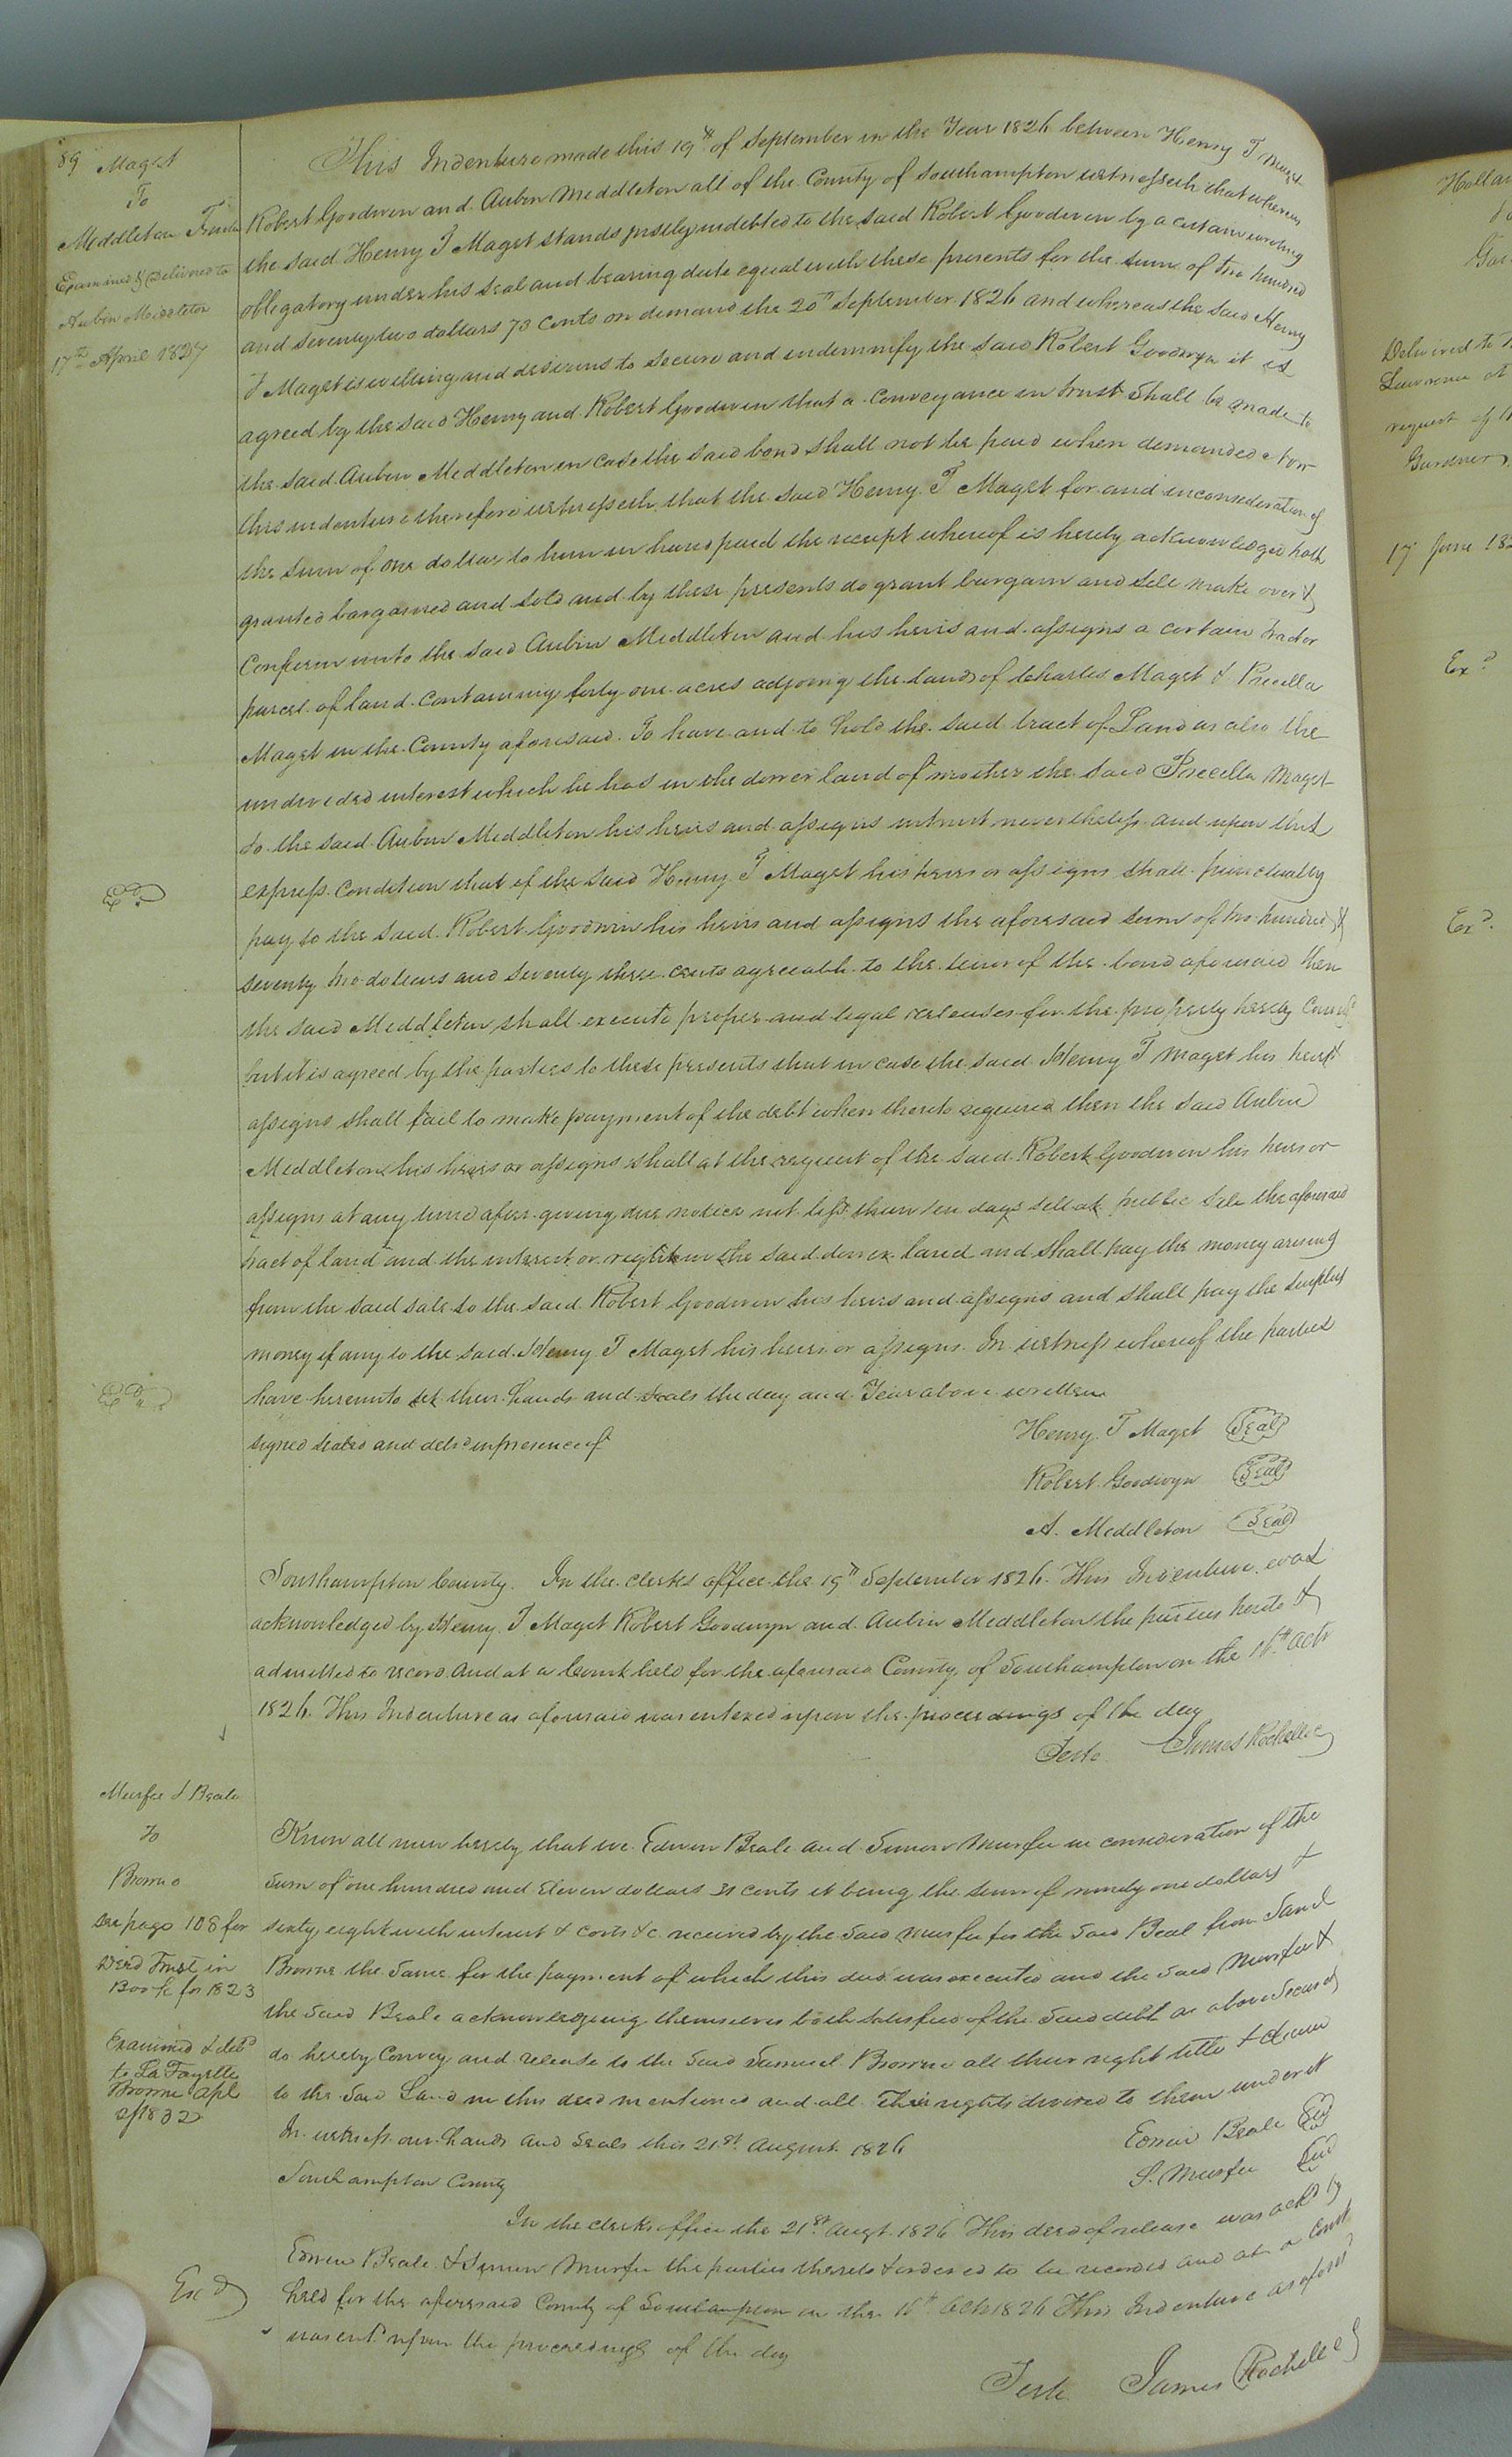 89 Maget
To
Middleton Trustee
Examined & Delivered to
Aubin Middleton
17th April 1827
This Indenture made this 19th of September in the Year 1826 between Henry T Maget
Robert Goodwin and Aubin Middleton all of the County of Southampton witnesseth that whereas
the said Henry T Maget stands justly indebted to the said Robert Goodwin by a certain writing
obligatory under his seal and bearing date equal with these presents for the sum of two hundred
and seventy two dollars 73 cents on demand the 20th September 1826 and whereas the said Henry
T Maget is willing and desirous to secure and indemnify the said Robert Goodwyn it is
agreed by the said Henry and Robert Goodwin that a conveyance in trust shall be made to
the said Aubin Middleton in case the said bond shall not be paid when demanded Now
this indenture therefore witnesseth, that the said Henry T Maget for and in consideration of
the sum of one dollar to him in hand paid the receipt whereof is hereby acknowledged hath
granted bargained and sold and by these presents do grant bargain and sell make over &
Confirm unto the said Aubin Middleton and his heirs and assigns a certain tract or
parcel of land containing forty one acres adjoing the lands of Charles Maget & Precilla
Maget in the County aforesaid. To have and to hold the said tract of Land as also the
undivided interest which he has in the dower land of mother the said Precella Maget
to the said Aubin Middleton his heirs and assigns in trust nevertheless and upon this
express condition that if the said Henry T Maget his heirs or assigns shall punctually
pay to the said Robert Goodwin his heirs and assigns the aforesaid sum of two hundred &
seventy two dollars and seventy three cents agreeable to the tenor of the bond aforesaid then
the said Middleton shall execute proper and legal releases for the property hereby
but it is agreed by the parties to these presents that in case the said Henry T Maget his heirs &
assigns shall fail to make payment of the debt when thereto required then the said Aubin
Middleton his heirs or assigns shall at the request of the said Robert Goodwin his heirs or
assigns at any time after giving due notice not less than ten days sell at public sale the aforesaid
tract of land and the interest or right in the said dower land and shall pay the money arising
from the said sale to the said Robert Goodwin his heirs and assigns and shall pay the surplus
money if any to the said Henry T Maget his heirs or assigns. In witness whereof the parties
have hereunto set their hands and seals the day and Year above written
signed sealed and deld in presence of
Henry T Maget Seal
Robert Goodwyn Seal
A. Middleton Seal
Exd
Exd
Southampton County. In the clerks office the 19th September 1826. This Indenture was
acknowledged by Henry T Maget Robert Goodwyn and Aubin Middleton the parties hereto &
admitted to record And at a Court held for the aforesaid County of Southampton on the 16th Octr
1826. This Indenture as aforesaid was entered upon the proceedings of the day
Teste James Rochelle
Murfee & Beale
To
Browne
See page 108 for
Deed Trust in
Book for 1823
Examined & deld
to La Fayette
Browne Apl
2/1832
Know all men hereby that we Edwin Beale and Simon Murfee in consideration of the
sum of one hundred and Eleven dollars 31 cents it being the sum of ninety one dollars &
sixty eight with interest & costs &c received by the said Murfee for the said Beal from Saml
Browne the same for the payment of which this deed was executed and the said Murfee &
the said Beale acknowledging themselves both satisfied of the said debt as above secured
do hereby Convey and release to the said Samuel Browne all their right title & claim
to the said Land in this deed mentioned and all their rights divised to them under it
In witness our hands and seals this 21st August 1826
Edwin Beale Seal
S. Murfee Seal
Southampton County
In the clerks office the 21st Augt 1826 This deed of release was ackd by
Edwin Beale & Simon Murfee the parties thereto & ordered to be recorded and at a Court
held for the aforesaid County of Southampton on the 16th Octr 1826 This Indenture as aforesd
was entd upon the proceedings of the day
Exd
Teste James Rochelle
Holla
To
Delivered to
Lawrence at
request of
Gardner
17 June 18
Exd
Exd